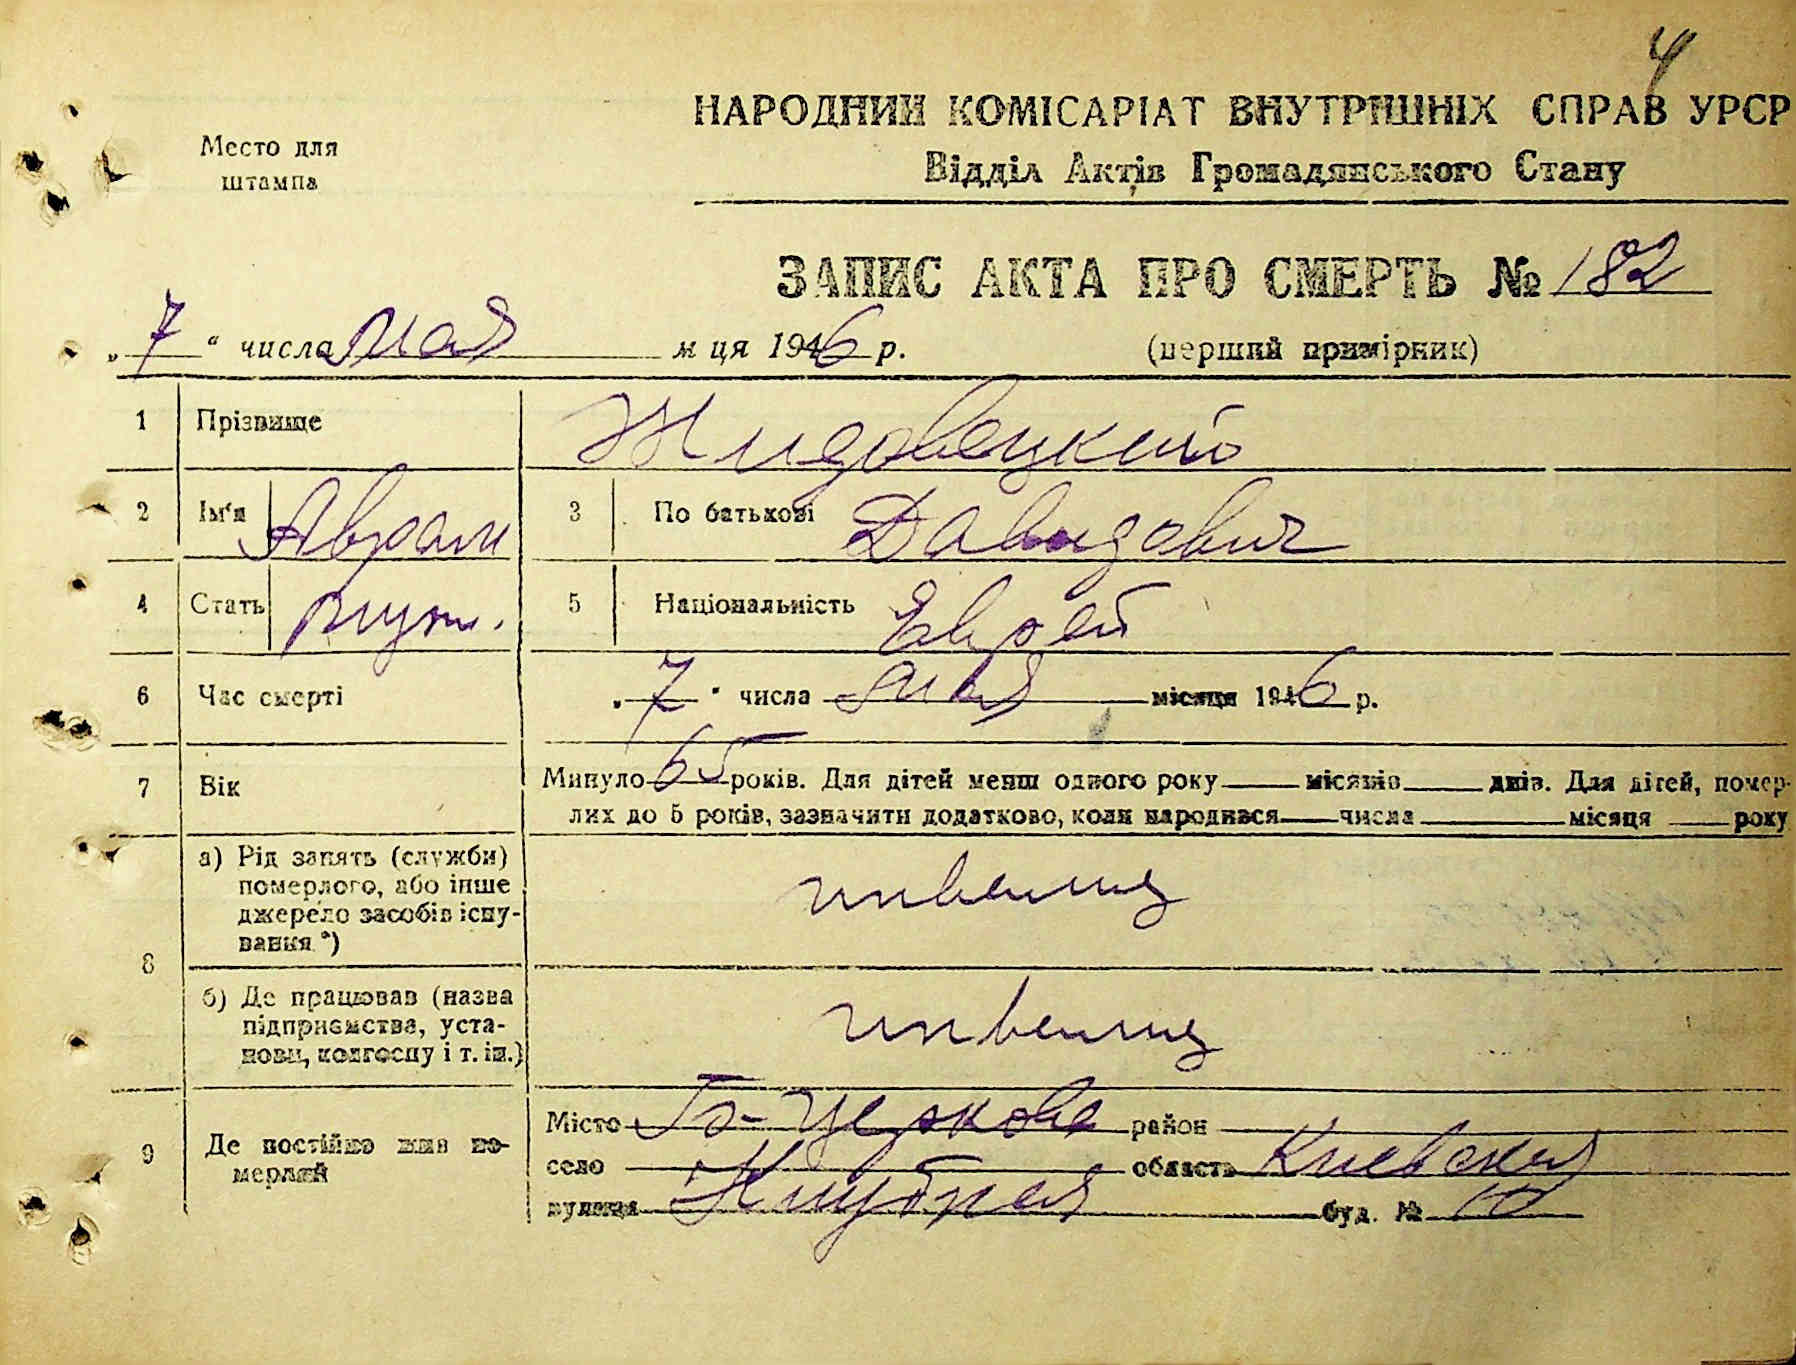 4
НАРОДНИЙ КОМІСАРІАТ ВНУТРІШНІХ СПРАВ УРСР
Відділ Актів Громадянського Стану
Место для
штампа
ЗАПИС АКТА ПРО СМЕРТЬ № 182
„7“ числа мая м ця 1946 р. (перший примірник)
1 Прізвище Жидовецкий
2 Ім'я Абрам 3 По батькові Давидович
4 Стать муж. 5 Національність Еврей
6 Час смерті „7“ числа мая місяця 1946 р.
7 Вік Минуло 65 років. Для дітей менш одного року місяців днів. Для дітей, помер-
лих до 5 років, зазначити додатково, коли народився числа місяця року
8 а) Рід занять (служби)
померлого, або інше
джерело засобів існу-
вання *)
инвалид
б) Де працював (назва
підприємства, уста-
нови, колгоспу і т. ін.)
инвалид
9 Де постійно жив по-
мерлий
Місто Б-Церковь район
село область Киевская
вулиця Клубная буд. № 10